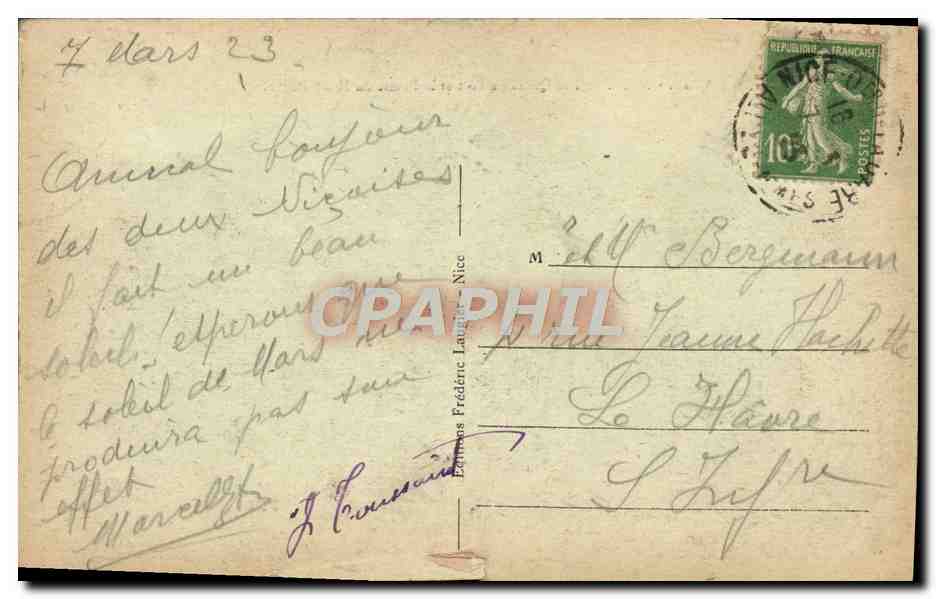 7 Mars 23
Amical bonjour
des deux Niçoises
il fait un beau
soleil! esperons que
le soleil de Mars ne
produira pas son
effet
Marcelle
J Toussaint
Editions Frédéric Laugier - Nice
CPAPHIL
REPUBLIQUE FRANÇAISE
10c
POSTES
NICE
M et Me Bergmann
rue Jeanne Hachette
Le Hâvre
S Infre